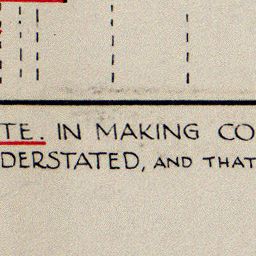 TE. IN MAKING CO
DERSTATED, AND THAT